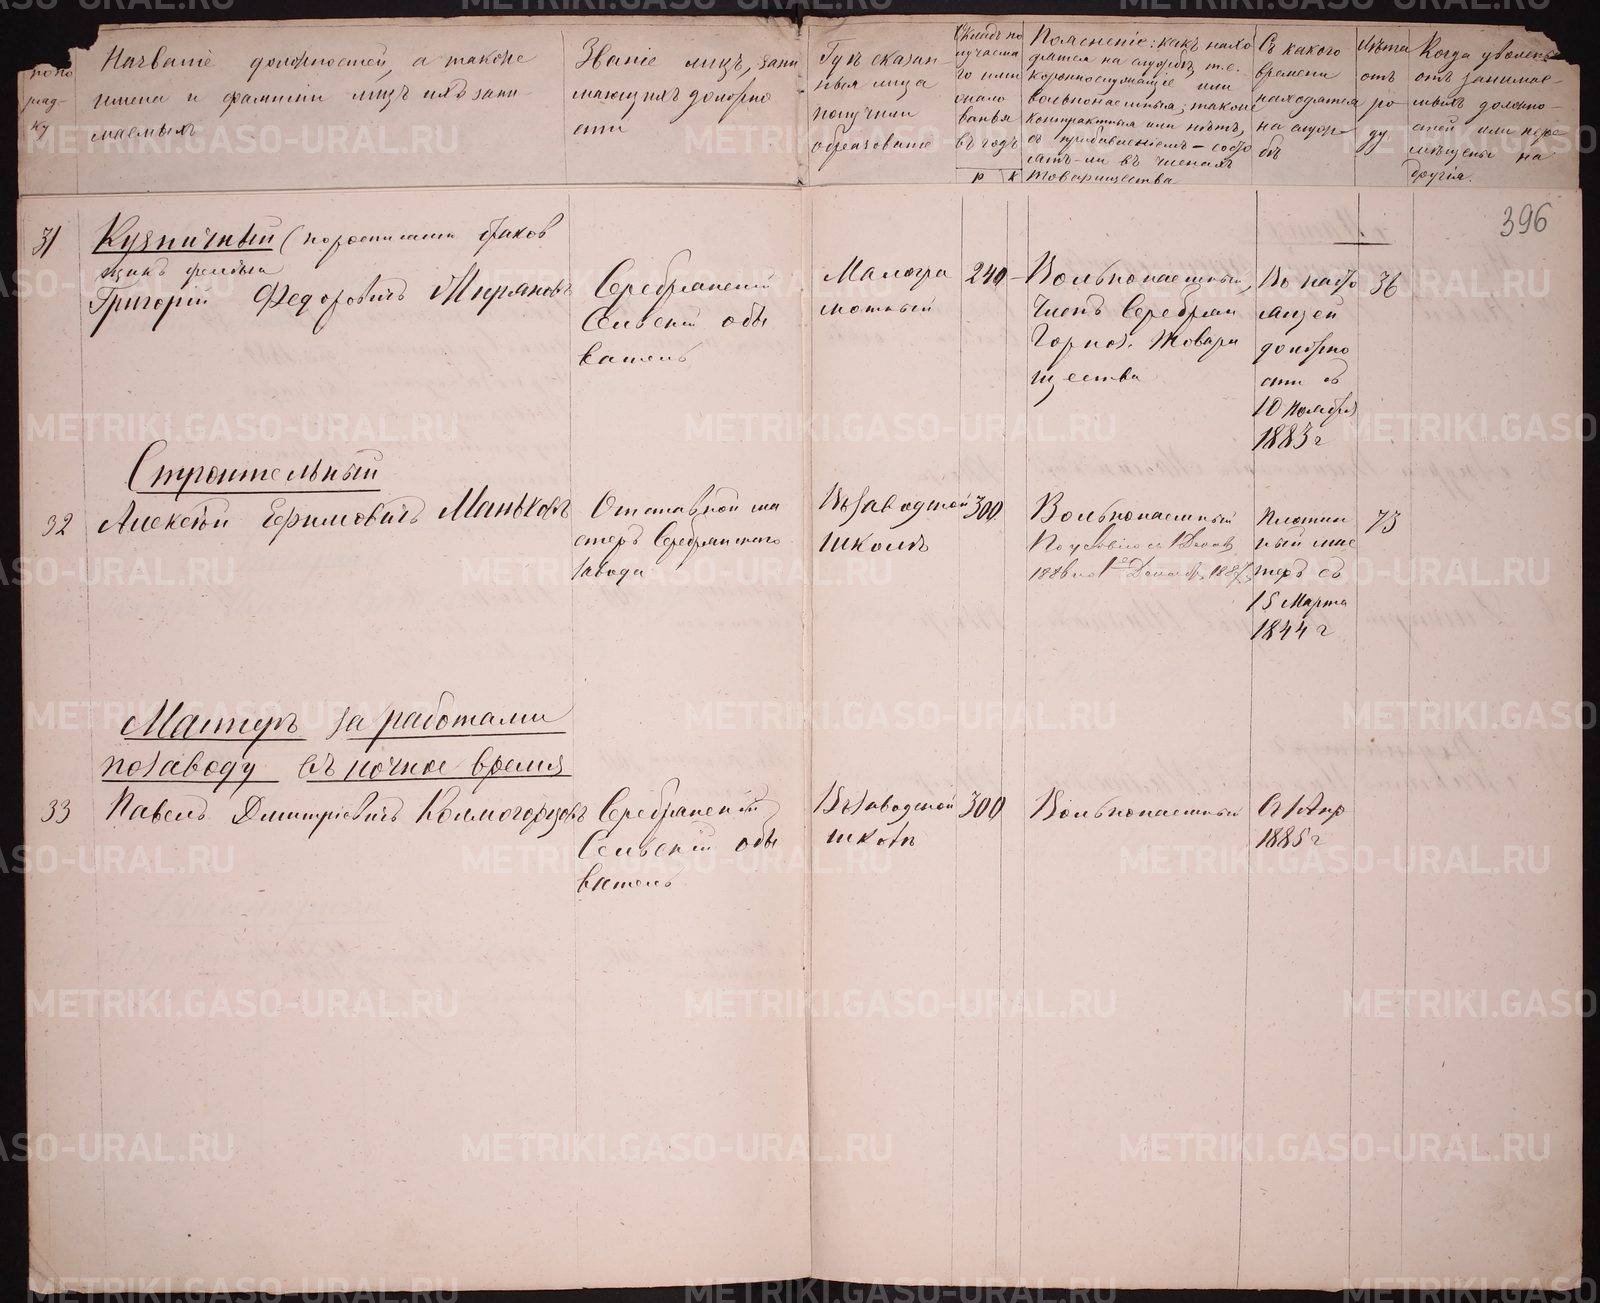 по по
ряд-
ку
Названіе должностей, а также
имена и фамиліи лицъ ихъ зани-
маемыхъ
Званіе лицъ, зани
мающихъ должно
сти
Гдѣ сказан-
ныя лица
получили
образованіе
получаема
го или
въ годъ
р к
Поясненіе: какъ нахо
дятся на службѣ т.е.
кореннослужащіе или
вольнонаемныя, также
контрактныя или нѣтъ,
съ прибавленіемъ – состо
ятъ-ли въ членахъ
товарищества
Съ какого
времени
находятся
на служ-
бѣ
Лѣта
отъ
ро-
ду
Когда уволены
отъ занимае-
мыхъ должно-
стей или пере
мѣщены на
другія.
396
31
Кузничный (по росписанію
Григорій Федоровичъ
Серебрянскій
Сельскій обы
ватель
Малогра
мотный
240 –
Вольнонаемный,
Членъ Серебрян
Горноз. Товари
щества
Въ насто
ящей
должно
сти съ
10 Ноября
1883 г
36
Строительный
32
Алексѣй Ефимовичъ Маньковъ
Отставной ма
стеръ Серебрянскаго
завода
Въ заводской
школѣ
300
Вольнонаемный
По условію съ 1 Декаб
1886 по 1е Декабр. 1887
Плотин
ный мас
теръ съ
15 Марта
1844 г
73
Мастеръ за работами
по заводу въ ночное время
33
Павелъ Дмитріевичъ Колмогорцовъ
Серебрянскій
Сельскій обы
ватель
Въ заводской
школѣ
300
Вольнонаемный
С 1 Апр
1885 г
METRIKI.GASO-URAL.RU